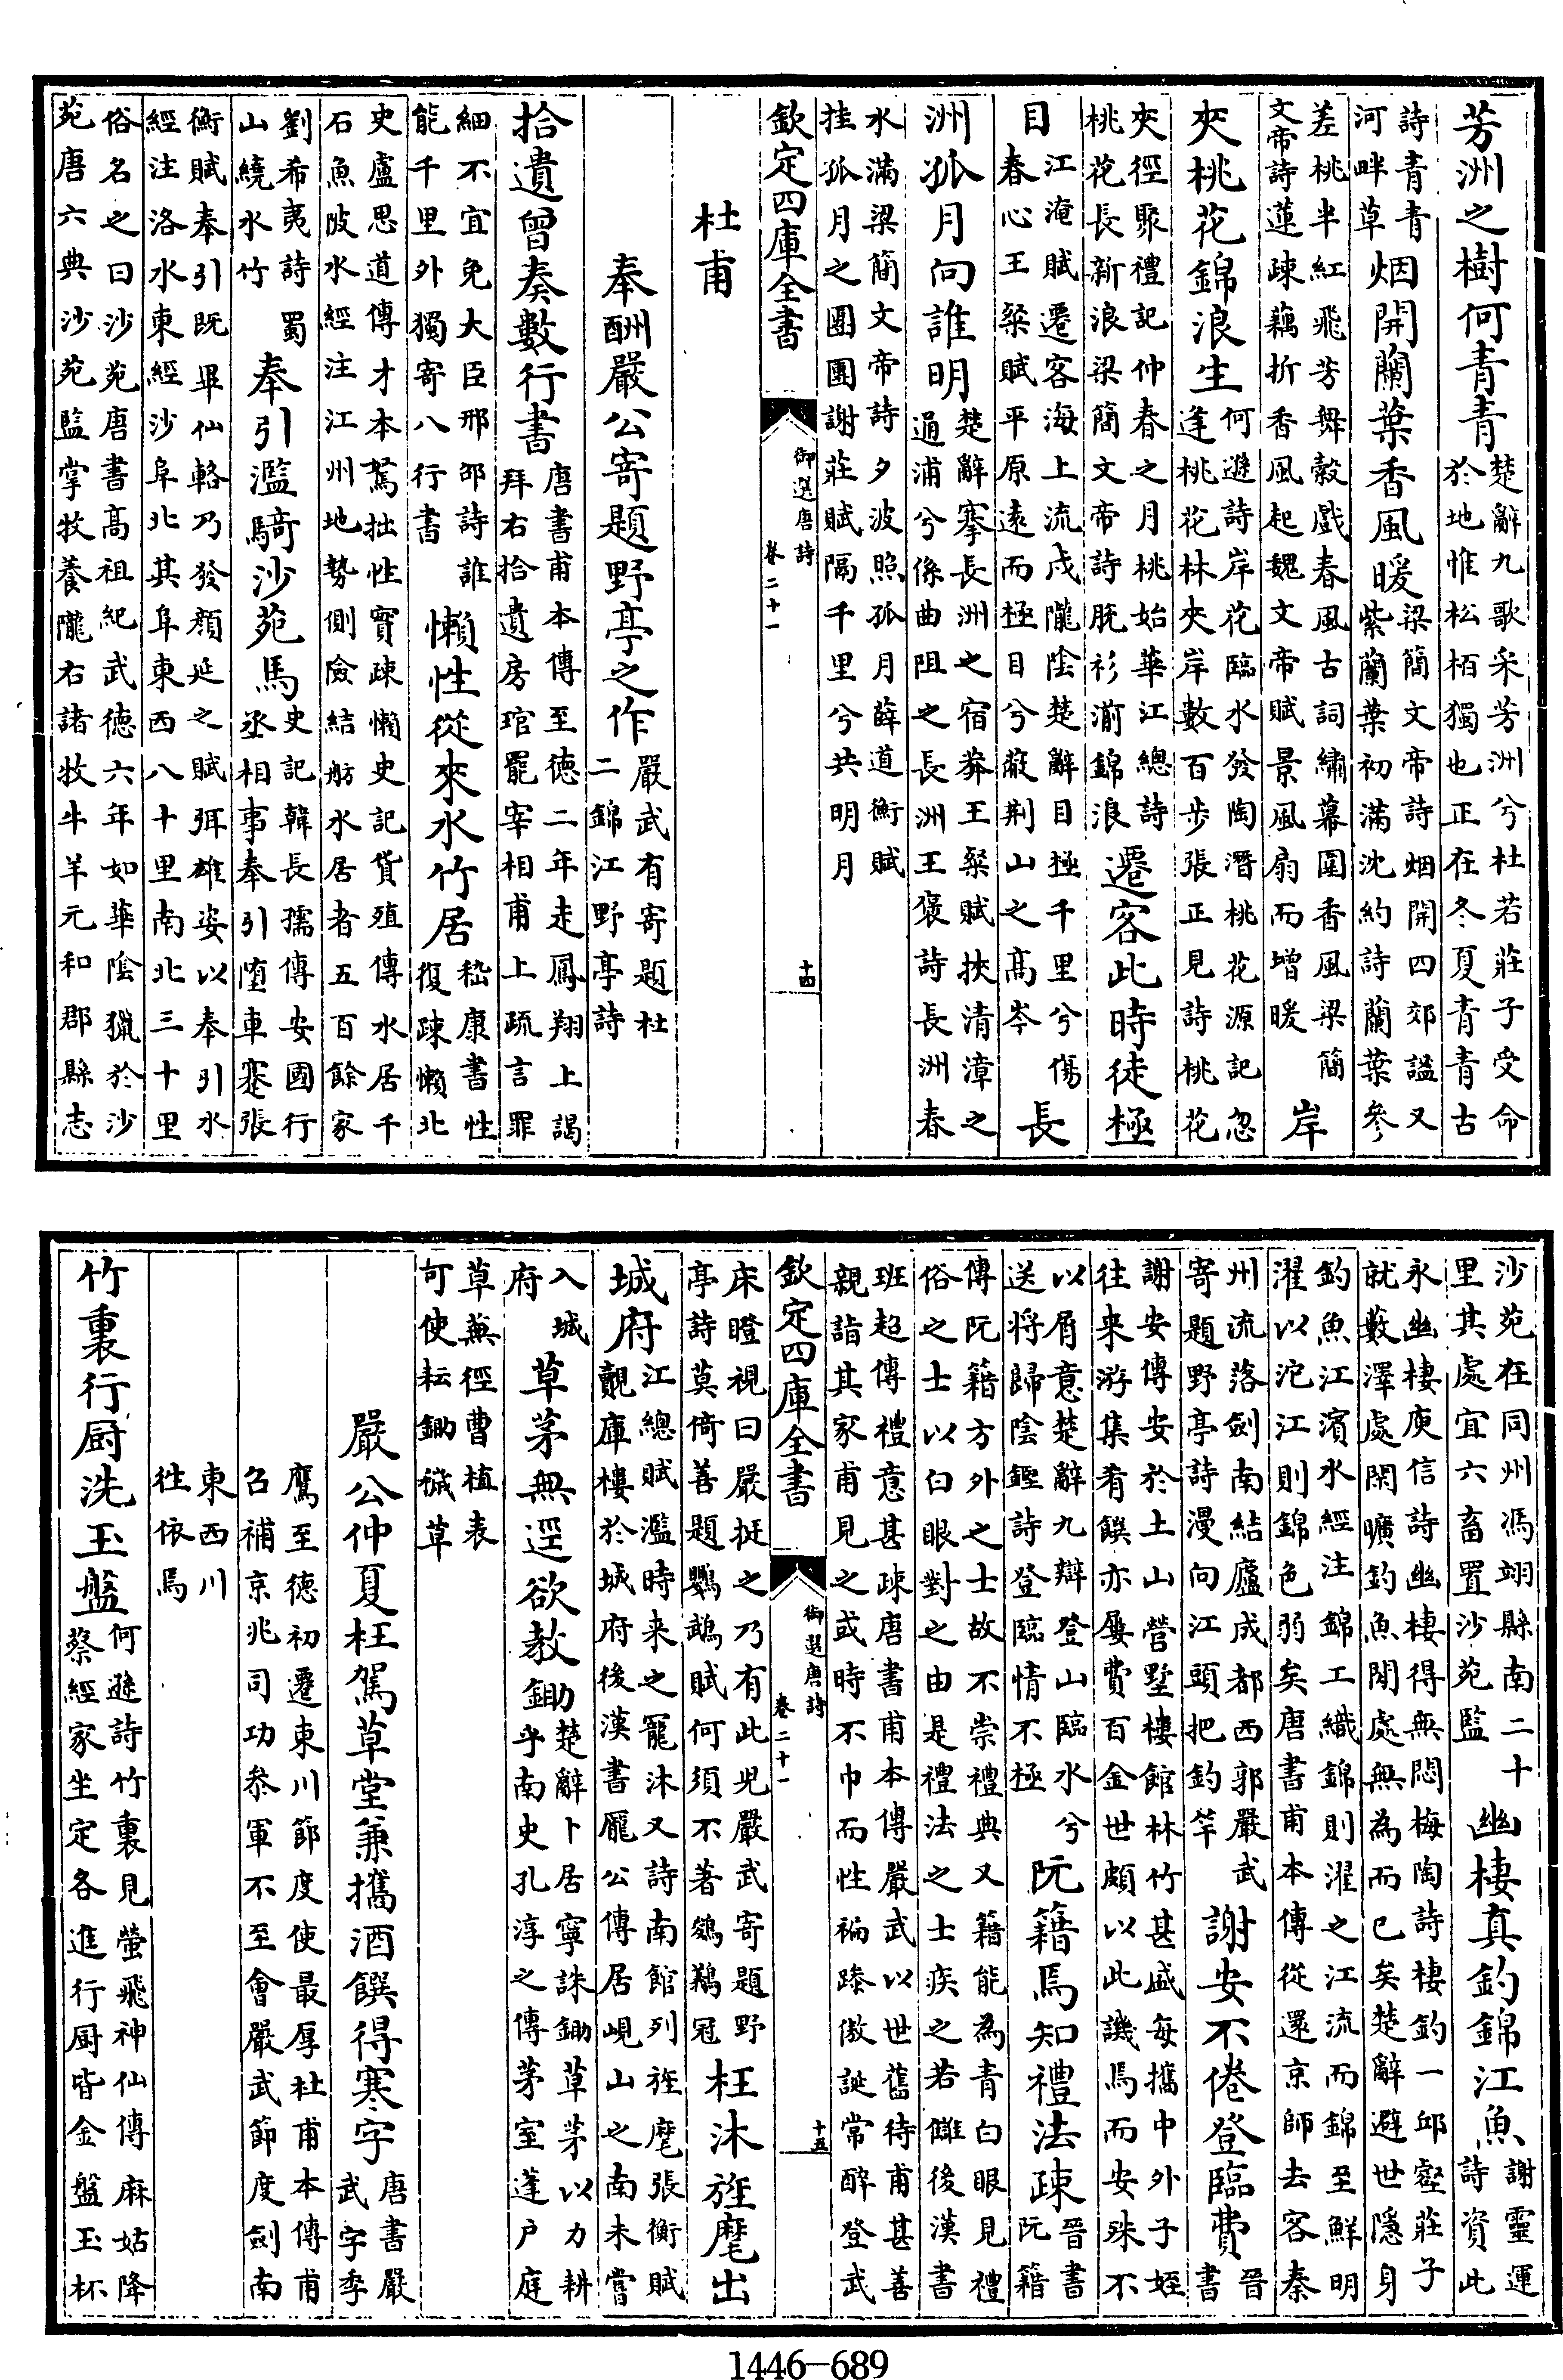 芳洲之樹何青青楚辭九歌采芳洲兮杜若莊子受命
於地惟松栢獨也正在冬夏青青古
詩青青
河畔草烟開蘭葉香風暖梁簡文帝詩烟開四郊謐又
紫蘭葉初滿沈約詩蘭葉參
差桃半紅飛芳舞縠戲春風古詞繡幕圍香風梁簡
文帝詩蓮疎藕折香風起魏文帝賦景風扇而增暖岸
夾桃花錦浪生何遜詩岸花臨水發陶潛桃花源記忽
逢桃花林夾岸數百步張正見詩桃花
夾徑聚禮記仲春之月桃始華江總詩
桃花長新浪梁簡文帝詩脱衫湔錦浪遷客此時徒極
目江淹賦遷客海上流戍隴陰楚辭目極千里兮傷
春心王粲賦平原遠而極目兮蔽荆山之髙岑長
洲孤月向誰明楚辭搴長洲之宿莽王粲賦挾清漳之
通浦兮倚曲阻之長洲王褒詩長洲春
水滿梁簡文帝詩夕波照孤月薛道衡賦
挂孤月之團團謝莊賦隔千里兮共明月
欽定四庫全書
御選唐詩
卷二十一
十四
杜甫
奉酬嚴公寄題野亭之作嚴武有寄題杜
二錦江野亭詩
拾遺曾奏數行書唐書甫本傳至德二年走鳳翔上謁
拜右拾遺房琯罷宰相甫上疏言罪
細不宜免大臣邢邵詩誰
能千里外獨寄八行書懶性從來水竹居嵇康書性
復疎懶北
史盧思道傳才本駑拙性實疎懶史記貨殖傳水居千
石魚陂水經注江州地勢側險結舫水居者五百餘家
劉希夷詩蜀
山繞水竹奉引濫騎沙苑馬史記韓長孺傳安國行
丞相事奉引堕車蹇張
衡賦奉引既畢仙輅乃發顔延之賦弭雄姿以奉引水
經注洛水東經沙阜北其阜東西八十里南北三十里
俗名之曰沙苑唐書髙祖紀武德六年如華陰獵於沙
苑唐六典沙苑監掌牧養隴右諸牧牛羊元和郡縣志
沙苑在同州馮翊縣南二十
里其處宜六畜置沙苑監幽棲真釣錦江魚謝靈運
詩資此
永幽棲庾信詩幽棲得無悶梅陶詩棲釣一邱壑莊子
就藪澤處閑曠釣魚閒處無為而已矣楚辭避世隱身
釣魚江濱水經注錦工織錦則濯之江流而錦至鮮明
濯以沱江則錦色弱矣唐書甫本傳從還京師去客秦
州流落劍南結廬成都西郭嚴武
寄題野亭詩漫向江頭把釣竿謝安不倦登臨費晉
書
謝安傳安於土山營墅樓館林竹甚盛每攜中外子姪
往来游集肴饌亦屢費百金世頗以此譏焉而安殊不
以屑意楚辭九辯登山臨水兮
送將歸陰鏗詩登臨情不極阮籍焉知禮法疎晉書
阮籍
傳阮籍方外之士故不崇禮典又籍能為青白眼見禮
俗之士以白眼對之由是禮法之士疾之若讎後漢書
班超傳禮意甚疎唐書甫本傳嚴武以世舊待甫甚善
親詣其家甫見之或時不巾而性褊躁傲誕常醉登武
欽定四庫全書
御選唐詩
卷二十一
十五
床瞪視曰嚴挺之乃有此兒嚴武寄題野
亭詩莫倚善題鸚鵡賦何須不著鵕鸃冠枉沐旌麾出
城府江總賦濫時来之寵沐又詩南館列旌麾張衡賦
覿庫樓於城府後漢書龎公傳居峴山之南未嘗
入城
府草茅無逕欲敎鋤楚辭卜居寧誅鋤草茅以力耕
乎南史孔淳之傳茅室蓬户庭
草蕪徑曹植表
可使耘鋤穢草
嚴公仲夏枉駕草堂兼攜酒饌得寒字唐書嚴
武字季
鷹至德初遷東川節度使最厚杜甫本傳甫
召補京兆司功叅軍不至會嚴武節度劍南
東西川
往依焉
竹裏行厨洗玉盤何遜詩竹裏見螢飛神仙傳麻姑降
蔡經家坐定各進行厨皆金盤玉杯
1446-689